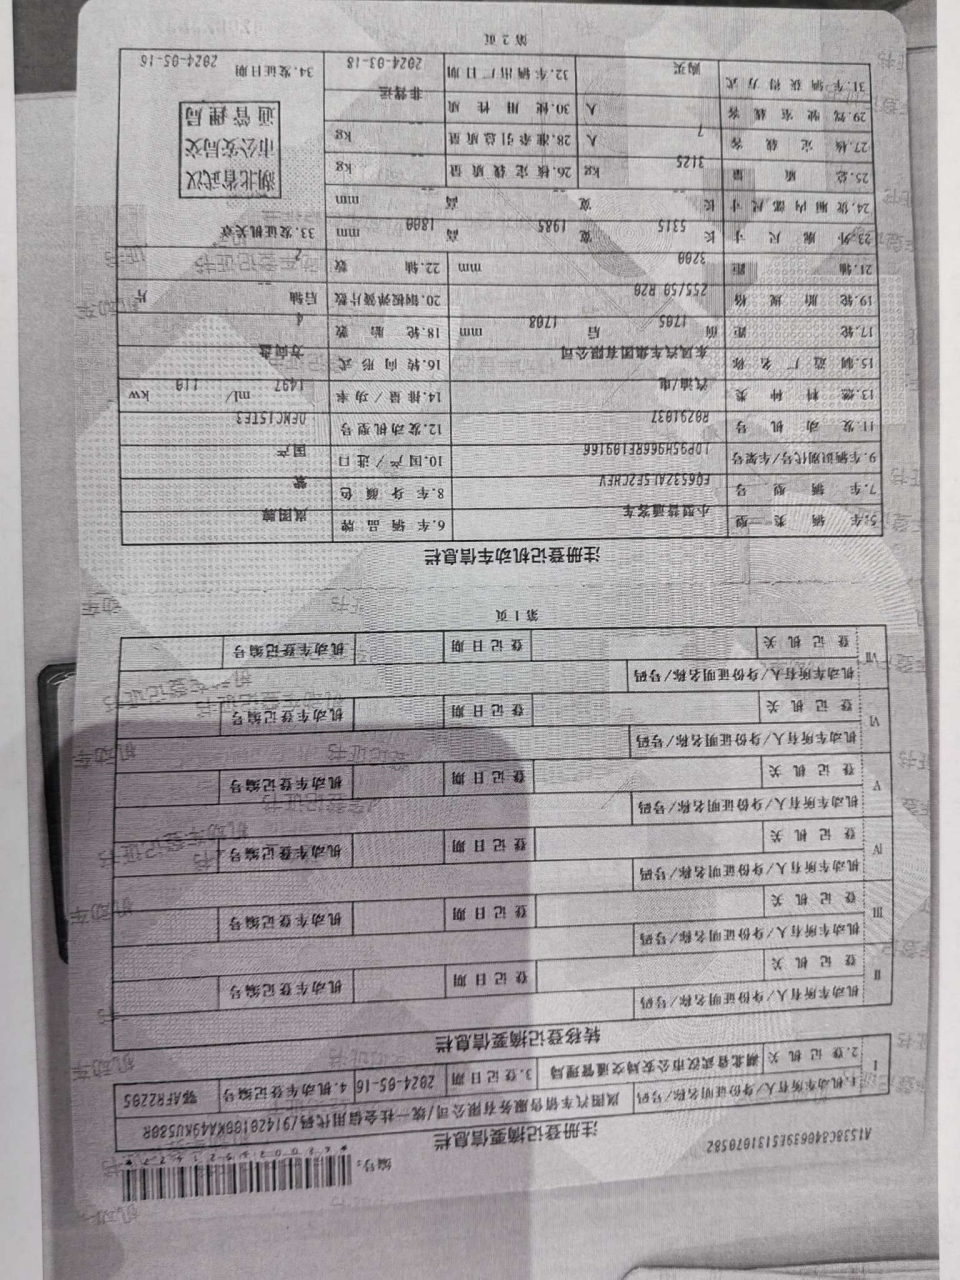 编号：
A1538C8400639E5131070582
注册登记摘要信息栏
I 1.机动车所有人/身份证明名称/号码 岚图汽车销售服务有限公司/统一社会信用代码/91420100MA49KU580R
2.登记机关 湖北省武汉市公安局交通管理局 3.登记日期 2024-05-16 4.机动车登记编号 鄂AFR2205
转移登记摘要信息栏
II 机动车所有人/身份证明名称/号码
登记机关 登记日期 机动车登记编号
III 机动车所有人/身份证明名称/号码
登记机关 登记日期 机动车登记编号
IV 机动车所有人/身份证明名称/号码
登记机关 登记日期 机动车登记编号
V 机动车所有人/身份证明名称/号码
登记机关 登记日期 机动车登记编号
VI 机动车所有人/身份证明名称/号码
登记机关 登记日期 机动车登记编号
VII 机动车所有人/身份证明名称/号码
登记机关 登记日期 机动车登记编号
第1页
注册登记机动车信息栏
5.车辆类型 小型普通客车 6.车辆品牌 岚图牌
7.车辆型号 EQ6532AL5F2CHEV 8.车身颜色 紫
9.车辆识别代号/车架号 LDP95H966RE109166 10.国产/进口 国产
11.发动机号 R0291037 12.发动机型号 DFMC15TE3
13.燃料种类 汽油/电 14.排量/功率 1497 ml/ 110 kw
15.制造厂名称 东风汽车集团有限公司 16.转向形式 方向盘
17.轮距 前 1705 后 1708 mm 18.轮胎数 4
19.轮胎规格 255/50 R20 20.钢板弹簧片数 后轴 -- 片
21.轴距 3200 mm 22.轴数 2
23.外廓尺寸 长 5315 宽 1985 高 1800 mm 33.发证机关章
24.货厢内部尺寸 长 -- 宽 -- 高 -- mm
25.总质量 3125 kg 26.核定载质量 -- kg
27.核定载客 7 人 28.准牵引总质量 -- kg
29.驾驶室载客 -- 人 30.使用性质 非营运
31.车辆获得方式 购买 32.车辆出厂日期 2024-03-18 34.发证日期 2024-05-16
湖北省武汉
市公安局交
通管理局
第2页